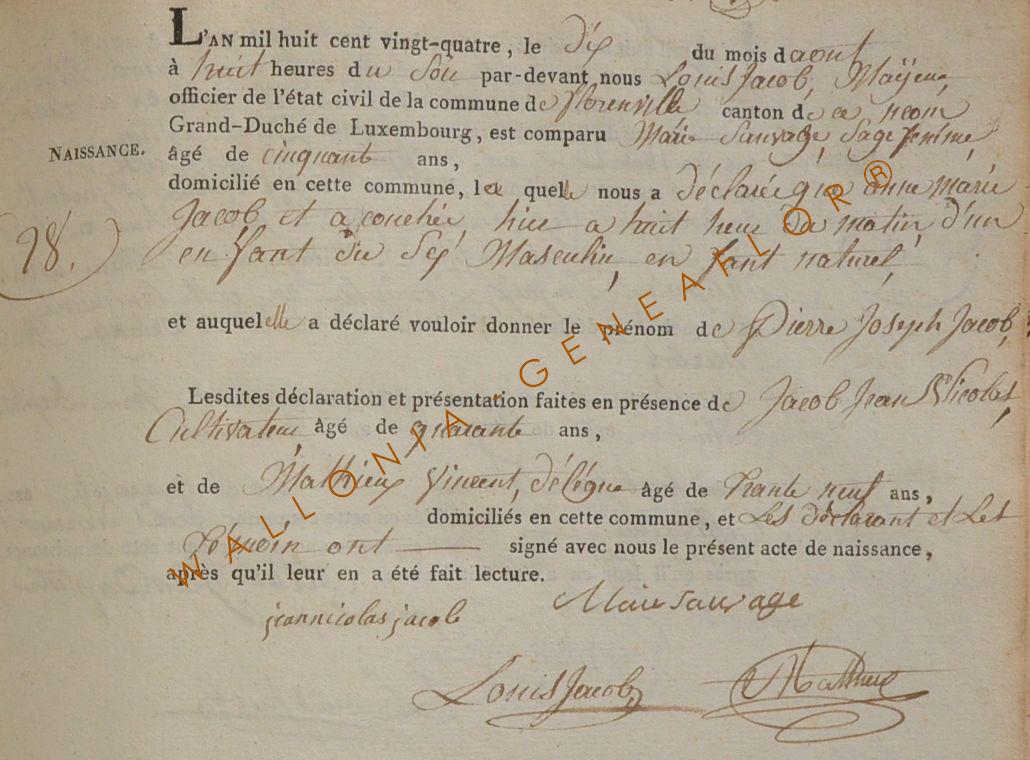 L'AN mil huit cent vingt-quatre, le dix du mois daout
à huit heures du Soir par-devant nous Louis Jacob, Mayeur,
officier de l'état civil de la commune de florenville canton de ce nom
Grand-Duché de Luxembourg, est comparu Marie Sauvage, Sage femme,
NAISSANCE.
âgé de cinquante ans,
domicilié en cette commune, la quelle nous a déclarée que anne marie
Jacob, et acouchée, hier a huit heur du matin, d'un
98.
en fant du Sex Masculin, en fant naturel,
et auquel elle a déclaré vouloir donner le prénom de Pierre Joseph Jacob,
Lesdites déclaration et présentation faites en présence de Jacob Jean Nicolas,
Cultivateur, âgé de quarante ans,
et de Mathieu Vincent, délégue âgé de trante neuf ans,
domiciliés en cette commune, et Les déclarant et Les
témoin ont signé avec nous le présent acte de naissance,
après qu'il leur en a été fait lecture.
jeannicolas jacob
Marie sauvage
Louis Jacob
Mathieu
WALLONIA - GENEAFLOR®